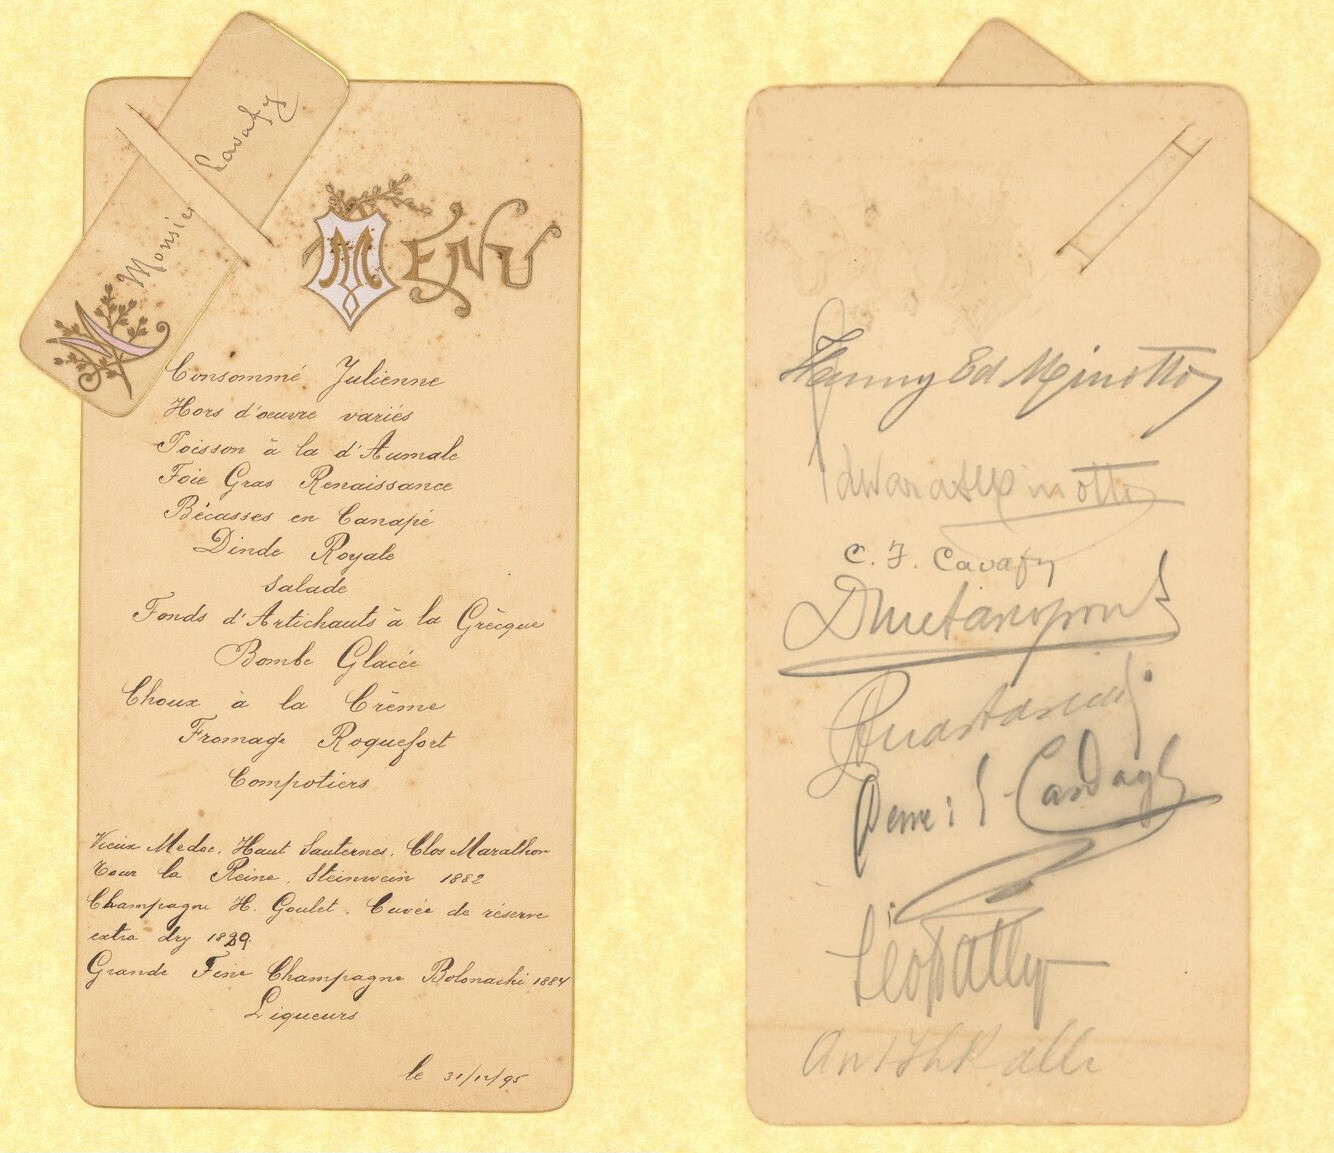 Monsieur Cavafy
M
MENU
Consommé Julienne
Hors d'œuvre variés
Poisson à la d'Aumale
Foie Gras Renaissance
Bécasses en Canapé
Dinde Royale
Salade
Fonds d'Artichauts à la Grècque
Bombe Glacée
Choux à la Crème
Fromage Roquefort
Compotiers
Vieux Medoc, Haut Sauternes, Clos Marathon
Tour la Reine, Steinwein 1882
Champagne H. Goulet, Cuvée de réserve
extra dry 1889.
Grande Fine Champagne Bolonachi 1884
Liqueurs
le 31/12/95
Fanny Ed Minotto
Edward Minotto
C. F. Cavafy
Pericl